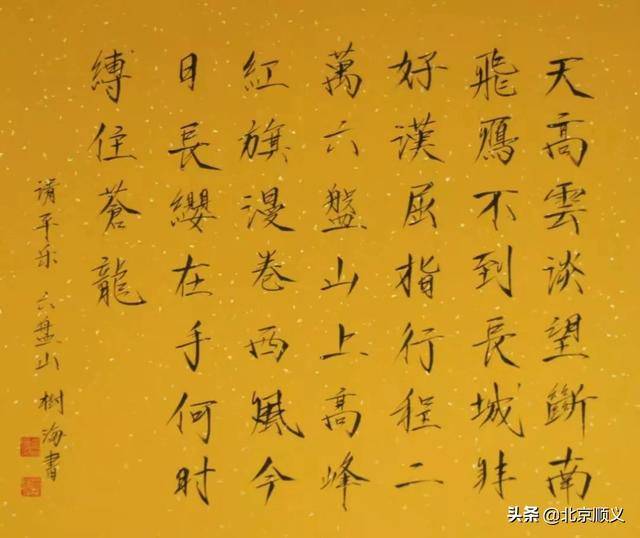 天高雲谈望斷南
飛鴈不到長城非
好漢屈指行程二
萬六盤山上高峰
紅旗漫卷西風今
日長纓在手何时
縛住蒼龍
清平乐 六盘山 樹海書
头条 @北京顺义